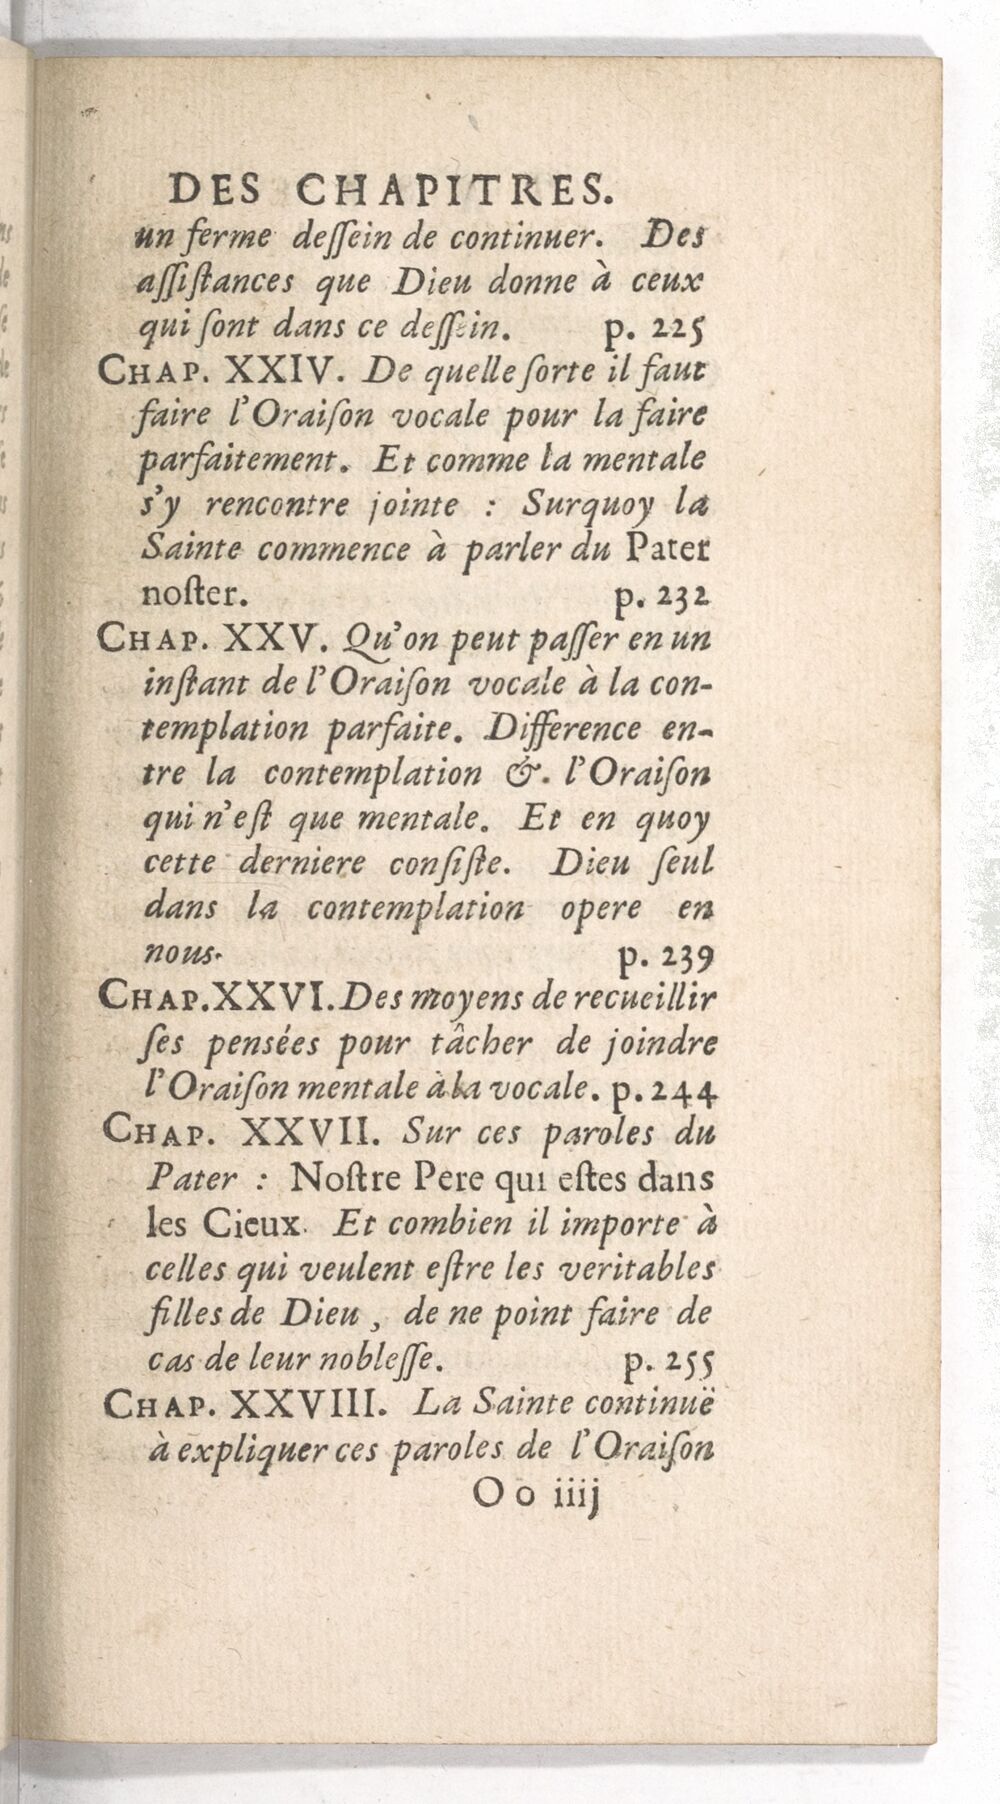 DES CHAPITRES.
un ferme deſſein de continuer. Des
aſſiſtances que Dieu donne à ceux
qui ſont dans ce deſſein. p. 225
CHAP. XXIV. De quelle ſorte il faut
faire l'Oraiſon vocale pour la faire
parfaitement. Et comme la mentale
s'y rencontre jointe : Surquoy la
Sainte commence à parler du Pater
noſter. p. 232
CHAP. XXV. Qu'on peut paſſer en un
inſtant de l'Oraiſon vocale à la con-
templation parfaite. Difference en-
tre la contemplation &. l'Oraiſon
qui n'eſt que mentale. Et en quoy
cette derniere conſiſte. Dieu ſeul
dans la contemplation opere en
nous. p. 239
CHAP. XXVI. Des moyens de recueillir
ſes pensées pour tâcher de joindre
l'Oraiſon mentale à la vocale. p. 244
CHAP. XXVII. Sur ces paroles du
Pater : Noſtre Pere qui eſtes dans
les Cieux. Et combien il importe à
celles qui veulent eſtre les veritables
filles de Dieu, de ne point faire de
cas de leur nobleſſe. p. 255
CHAP. XXVIII. La Sainte continuë
à expliquer ces paroles de l'Oraiſon
Oo iiij